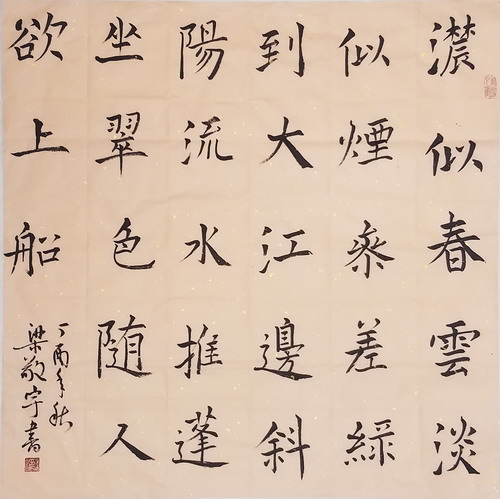 濃似春雲淡
似煙參差綠
到大江邊斜
陽流水推蓬
坐翠色隨人
欲上船
丁酉年秋
梁敬宇書